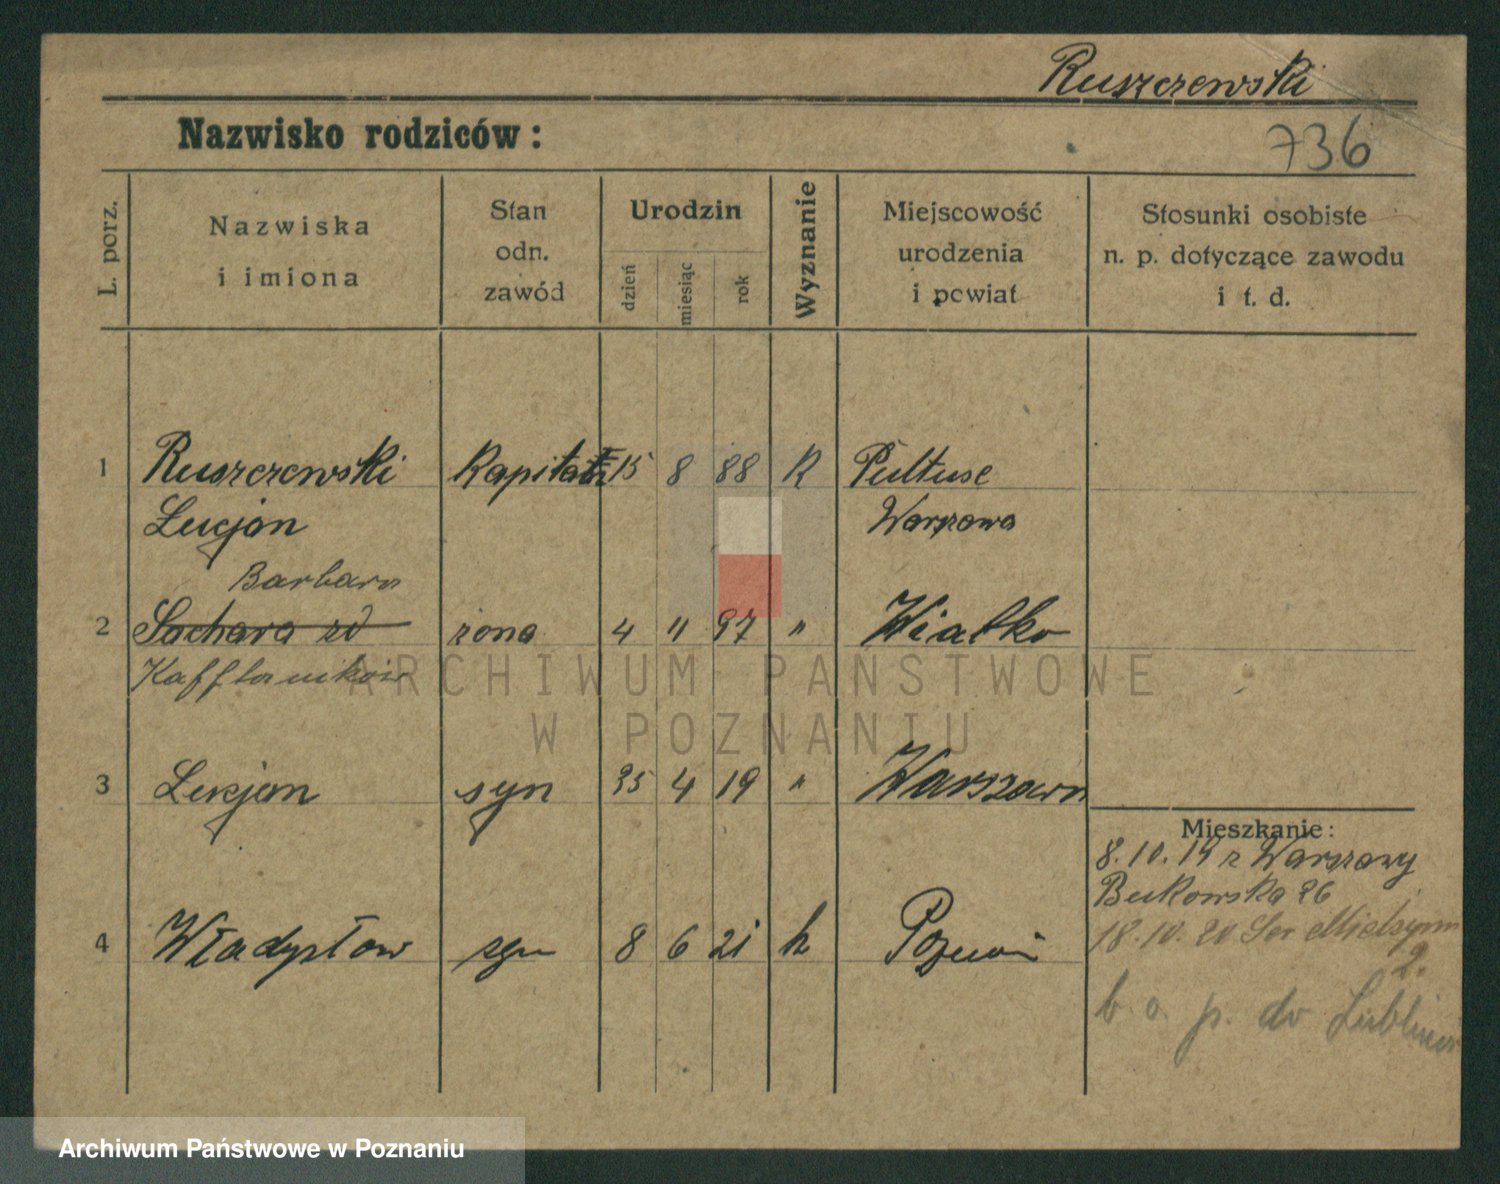 Ruszczewski
Nazwisko rodziców:
736
L. porz.
Nazwiska
i imiona
Stan
odn.
zawód
Urodzin
dzień
miesiąc
rok
Wyznanie
Miejscowość
urodzenia
i powiat
Stosunki osobiste
n. p. dotyczące zawodu
i t. d.
1 Ruszczewski Kapitan 15 8 88 K Pułtusc
Lucjan Warszawa
Barbara
2 Sachara zd żona 4 11 97 "
3 Lucjan syn 4 19 " Warszawa
Mieszkanie:
8.10.19 z Warszawy
Bukowska 26
4 Władysław syn 8 6 21 k Poznań
18.10.20
2.
b. o. p. do Lublina
ARCHIWUM PAŃSTWOWE
W POZNANIU
Archiwum Państwowe w Poznaniu